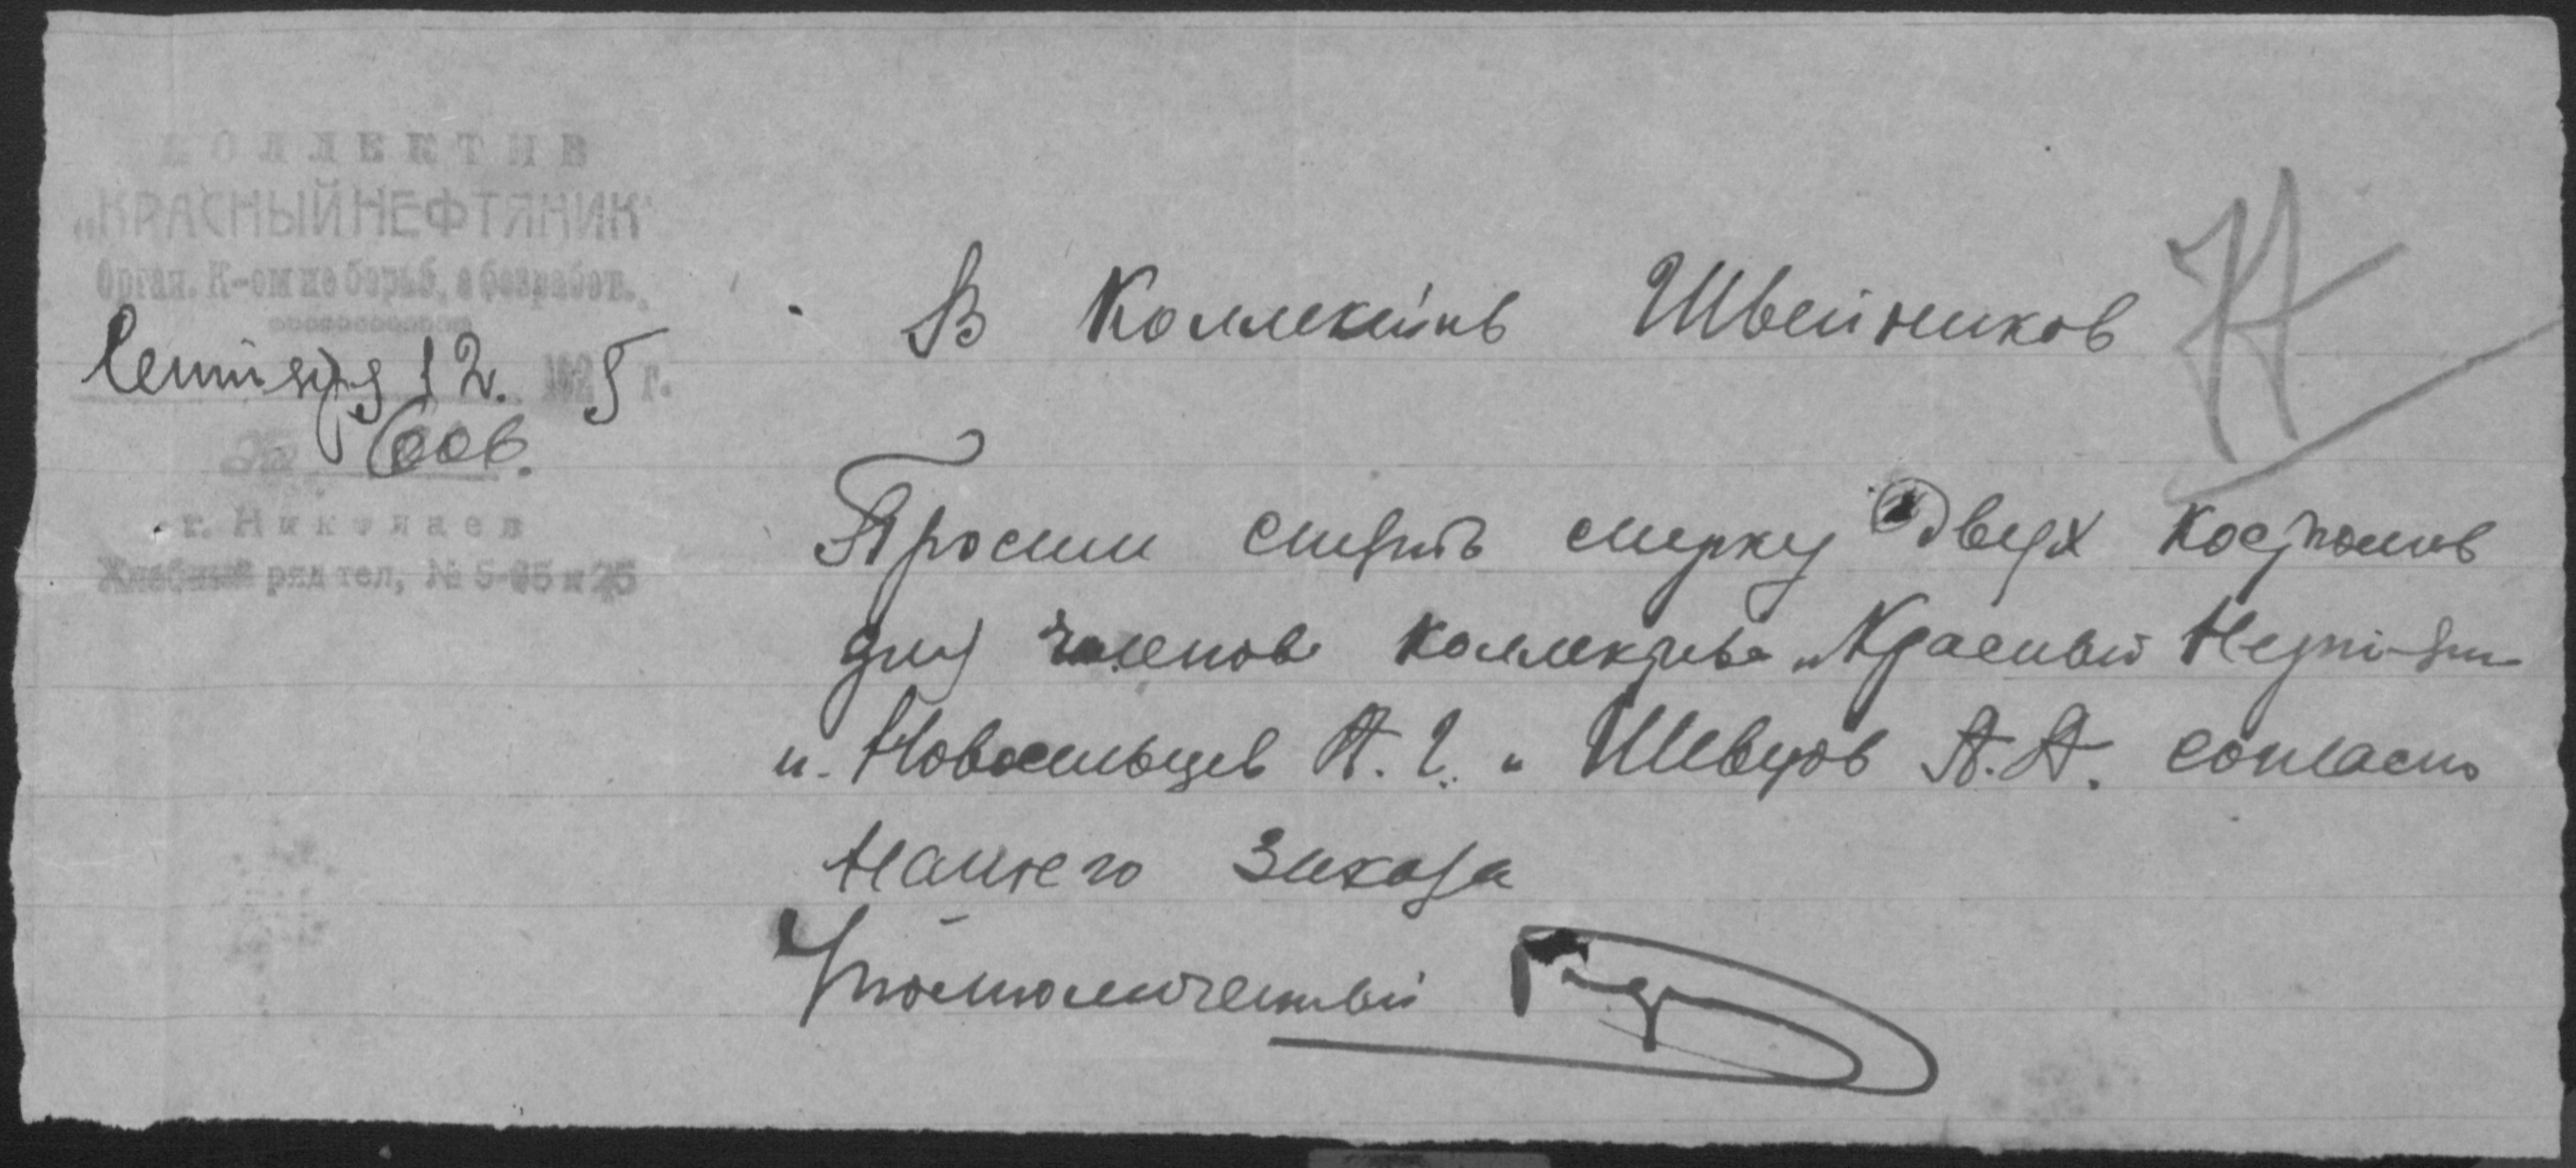 КОЛЛЕКТИВ
„КРАСНЫЙ НЕФТЯНИК"
Орган. К-ом по борьб. с безработ.
Сентября 12. 1925 г.
№ 606.
г. Николаев
Хлебный ряд тел, № 5-65 и 25
В Коллектив Швейников
Просим снять мерку двух костюмов
для членов коллектива „Красный Нефтяник
и. Новосельцев А. Г. и Шевцов А. А. согласно
нашего заказа
Уполномоченный